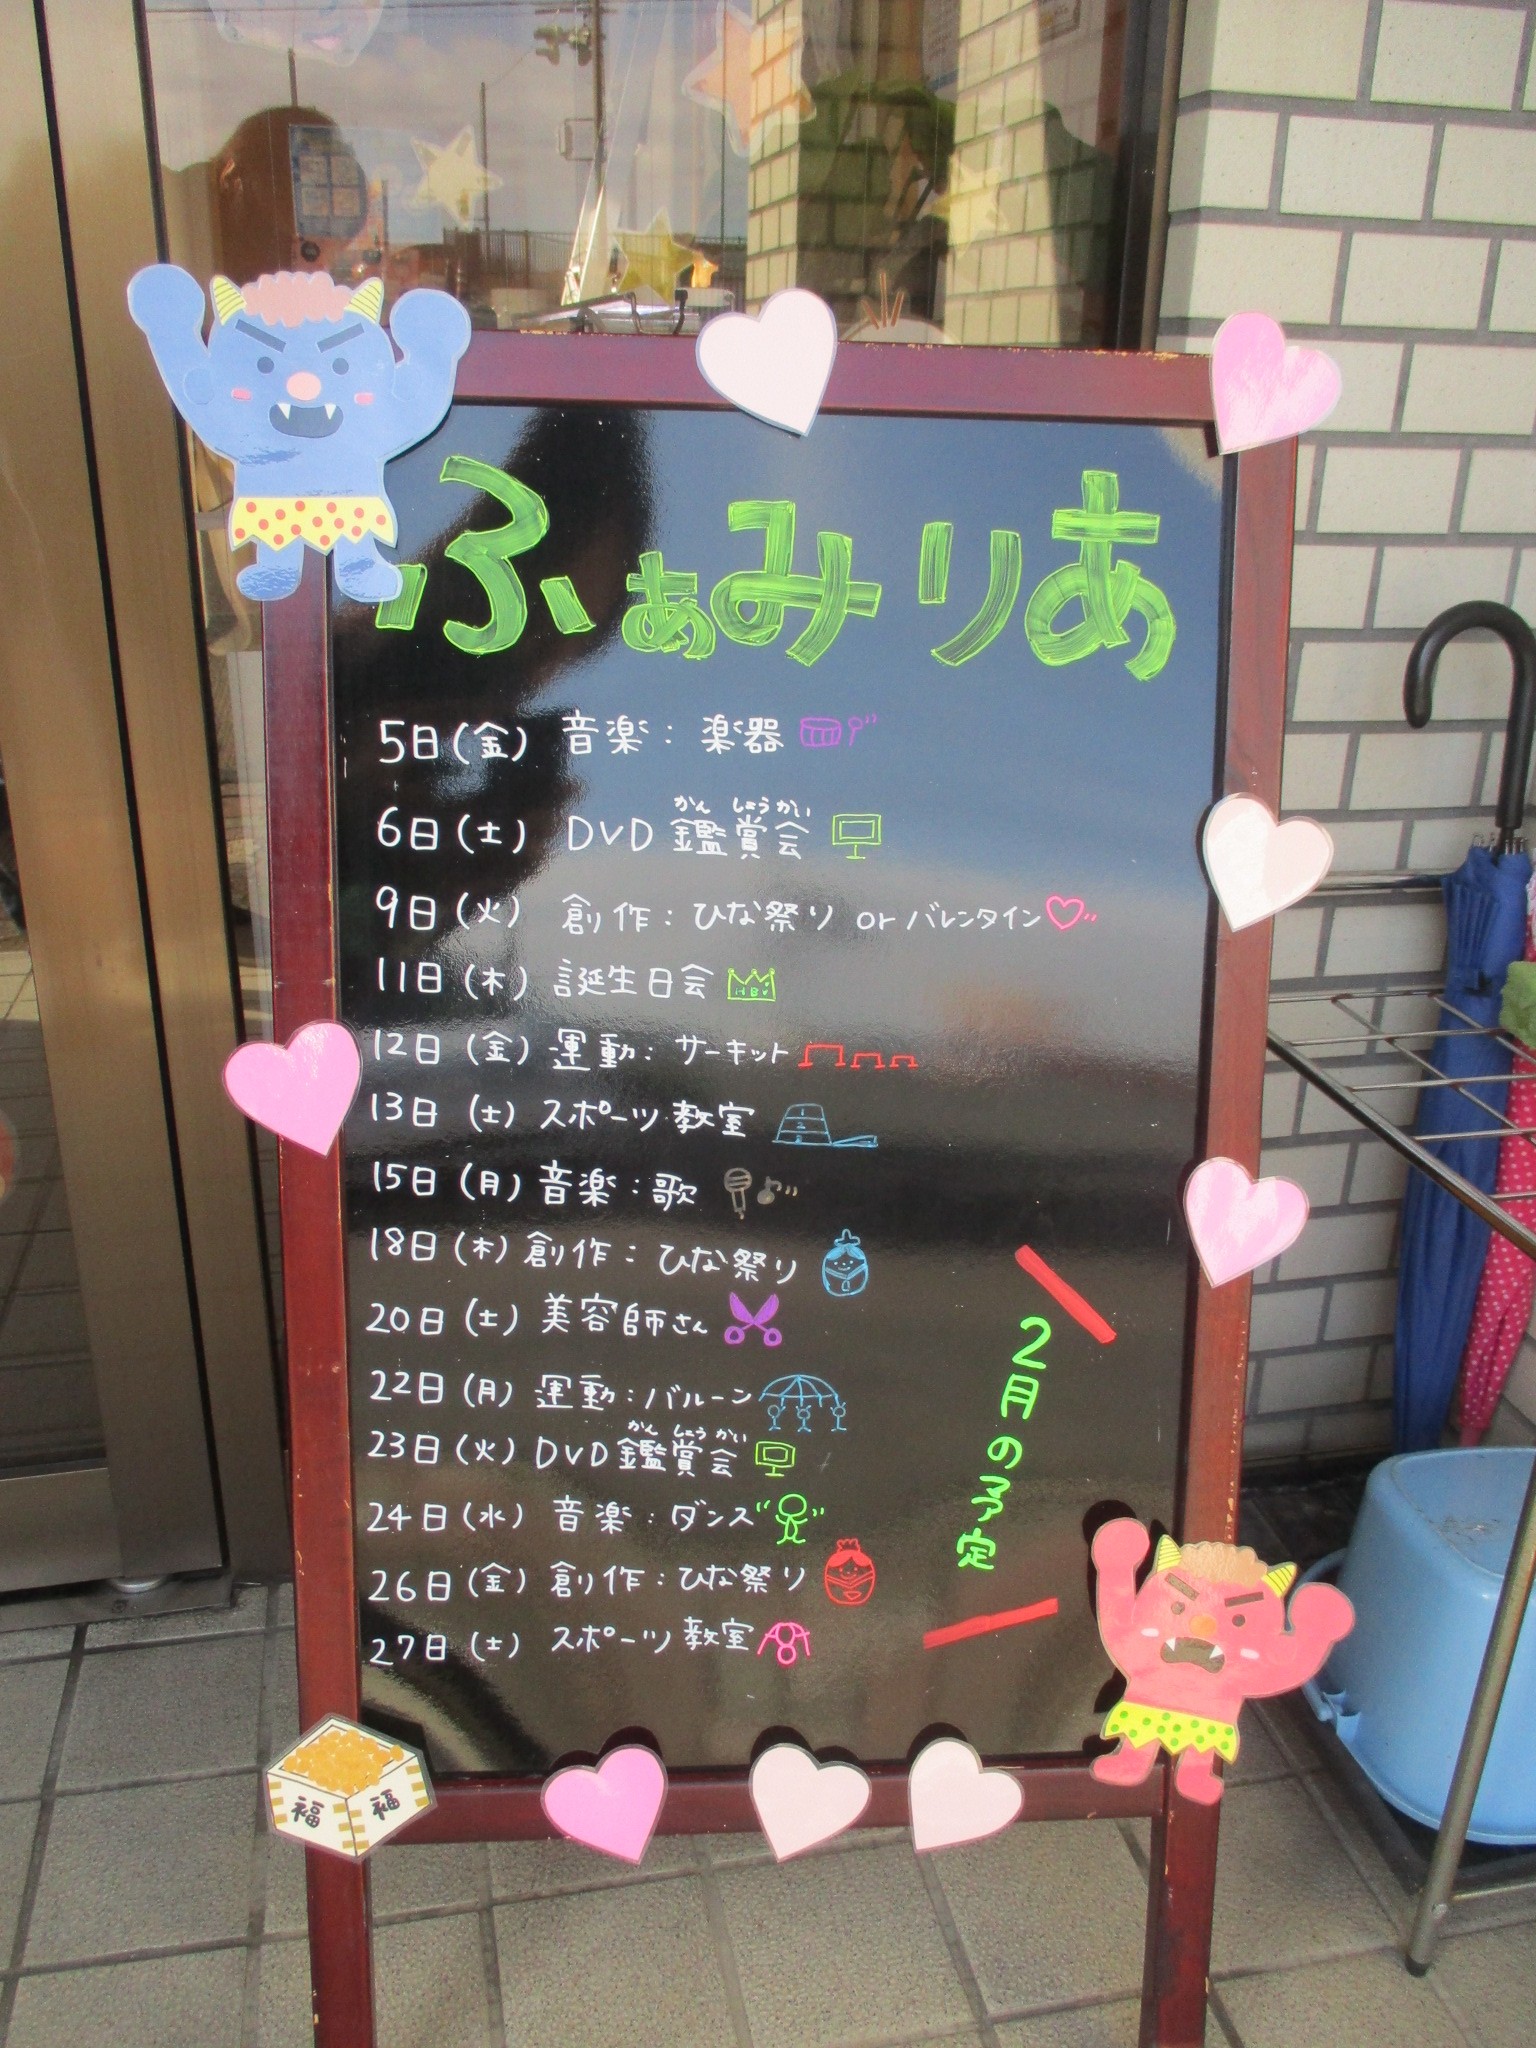 ふぁみりあ
5日(金) 音楽: 楽器
かん しょう かい
6日(土) DVD 鑑賞会
9日(火) 創作: ひな祭り or バレンタイン
11日(木) 誕生日会
HB
12日(金) 運動: サーキット
13日(土) スポーツ教室
1
2
3
15日(月) 音楽: 歌
18日(木) 創作: ひな祭り
20日(土) 美容師さん
22日(月) 運動: バルーン
かん しょう かい
23日(火) DVD 鑑賞会
24日(水) 音楽: ダンス
26日(金) 創作: ひな祭り
27日(土) スポーツ教室
2月の予定
福 福